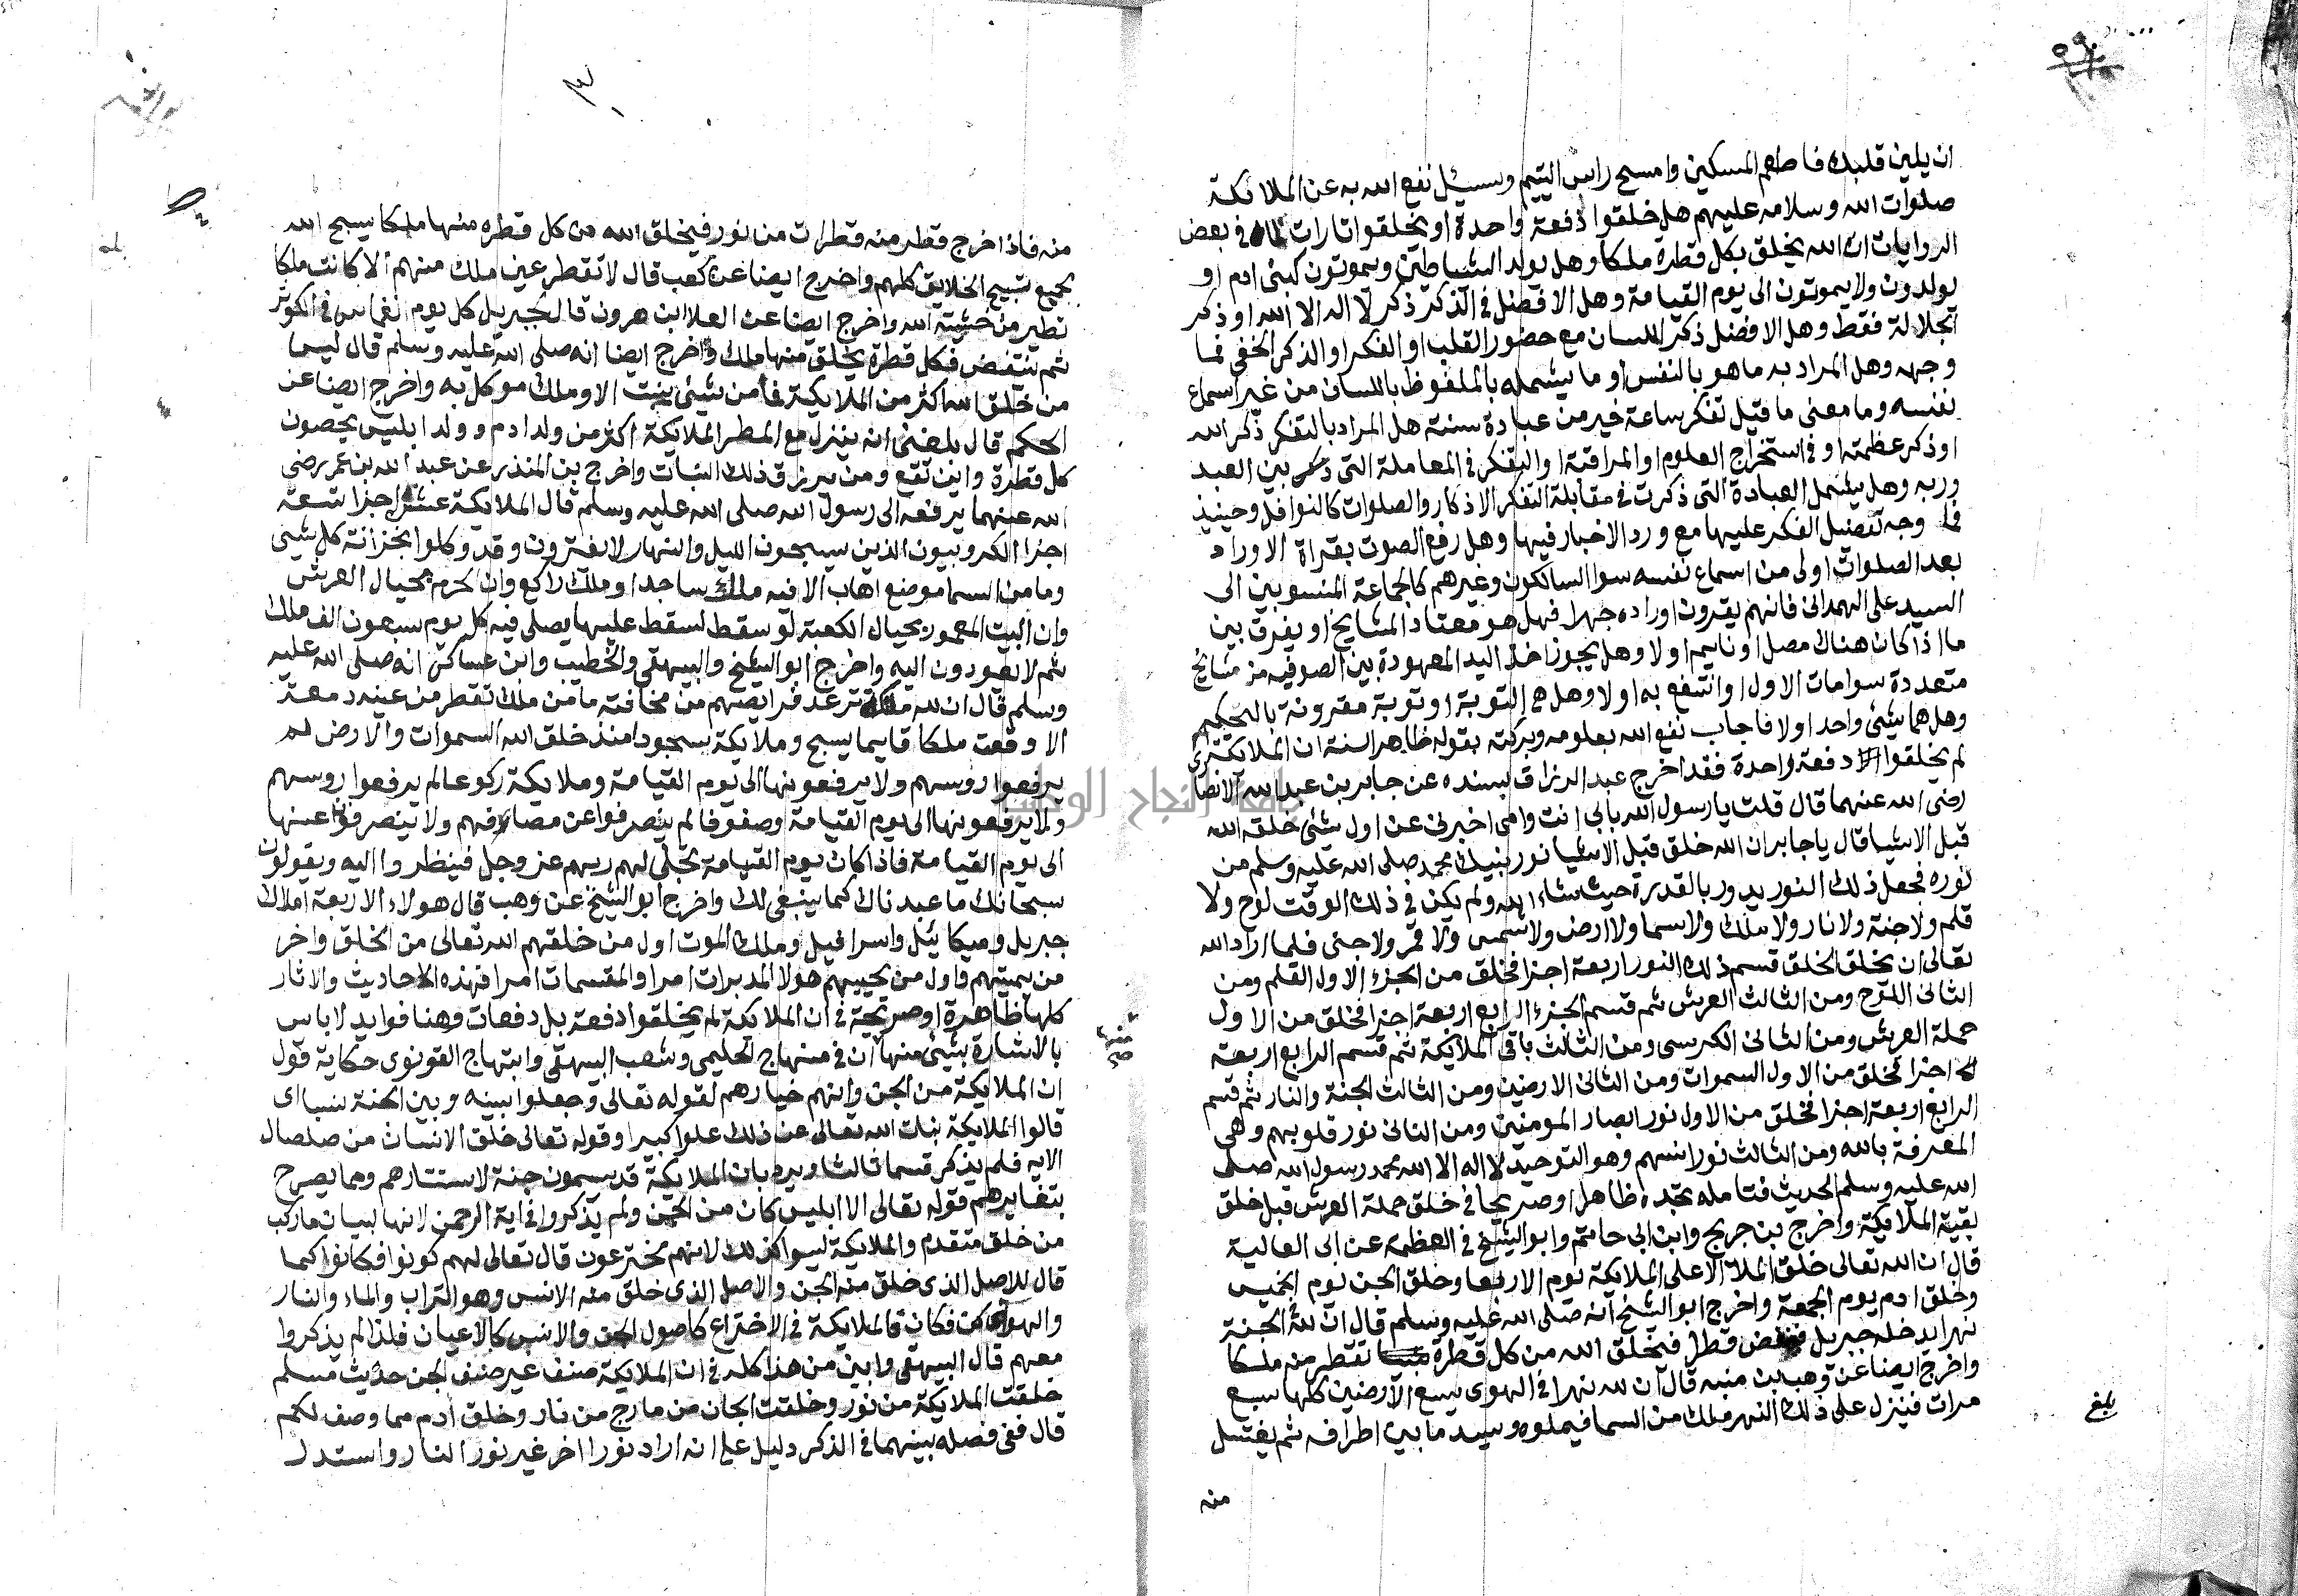 ان يلين قلبك فاطعم المسكين وامسح راس اليتيم وسئل نفع الله به عن الملائكة
صلوات الله وسلامه عليهم هل خلقوا دفعة واحدة او يخلقوا تارات في بعض
الروايات ان الله يخلق بكل قطرة ملكا وهل يولد الشياطين ويموتون كبنى ادم او
يولدون ولا يموتون الى يوم القيامة وهل الافضل في الذكر ذكر لا اله الا الله او ذكر
الجلالة فقط وهل الافضل ذكر اللسان مع حضور القلب او الفكر او الذكر الخفي فما
وجهه وهل المراد به ما هو بالنفس او ما يشمله بالملفوظ باللسان من غير اسماع
نفسه وما معنى ما قيل تفكر ساعة خير من عبادة سنة هل المراد بالتفكر ذكر الله
او ذكر عظمته او في استخراج العلوم او المراقبة او التفكر في المعاملة التى بين العبد
وربه وهل يشمل العبادة التى ذكرت في مقابلة التفكر الاذكار والصلوات كالنوافل وحينيذ
فما وجه تفضيل الفكر عليها مع ورد الاخبار فيها وهل رفع الصوت بقراة الاوراد
بعد الصلوات اولى من اسماع نفسه سوا السالكون وغيرهم كالجماعة المنسوبين الى
السيد على الهمدانى فانهم يقرون اوراده جهرا فهل هو معتاد المشايخ او يفرق بين
ما اذا كان هناك مصل او نايم او لا وهل يجوز اخذ اليد المعهودة بين الصوفيه من مشايخ
متعددة سوا مات الاول وانتفع به او لا وهل هى التوبة او توبة مقرونة بالتحكيم
وهل هما شئ واحد او لا فاجاب نفع الله بعلومه وبركته بقوله ظاهر السنة ان الملايكة
لم يخلقوا دفعة واحدة فقد اخرج عبد الرزاق بسنده عن جابر بن عبد الله الانصارى
رضى الله عنهما قال قلت يا رسول الله بأبى انت وامى اخبرنى عن اول شئ خلقه الله
قبل الاشيا قال يا جابر ان الله خلق قبل الاشيا نور نبيك محمد صلى الله عليه وسلم من
نوره فجعل ذلك النور يدور بالقدرة حيث شاء الله ولم يكن في ذلك الوقت لوح ولا
قلم ولا جنة ولا نار ولا ملك ولا سما ولا ارض ولا شمس ولا قمر ولا جنى فلما اراد الله
تعالى ان يخلق الخلق قسم ذلك النور اربعة اجزا فخلق من الجزء الاول القلم ومن
الثانى اللوح ومن الثالث العرش ثم قسم الجزء الرابع اربعة اجزا فخلق من الاول
حملة العرش ومن الثانى الكرسى ومن الثالث باقى الملائكة ثم قسم الرابع اربعة
اجزا فخلق من الاول السموات ومن الثانى الارضين ومن الثالث الجنة والنار ثم قسم
الرابع اربعة اجزا فخلق من الاول نور ابصار المومنين ومن الثانى نور قلوبهم وهى
المعرفة بالله ومن الثالث نور انسهم وهو التوحيد لا اله الا الله محمد رسول الله صلى
الله عليه وسلم الحديث فتامله تجده ظاهرا وصريحا في خلق حملة العرش قبل خلق
بقية الملايكة واخرج بن جريج وابن ابى حاتم وابو الشيخ في العظمة عن ابى العالية
قال ان الله تعالى خلق الملأ الاعلى الملايكة يوم الاربعا وخلق الجن يوم الخميس
وخلق ادم يوم الجمعة واخرج ابو الشيخ انه صلى الله عليه وسلم قال ان لله الجنة
نهرا يدخله جبريل قطرا فيخلق الله من كل قطرة تقطر منه ملكا
واخرج ايضا عن وهب بن منبه قال ان لله نهرا في الهوى يسع الارضين كلها سبع
مرات فينزل على ذلك النهر ملك من السما فيملوه ويسد ما بين اطرافه ثم يغتسل
منه
بلغ
منه فاذا خرج قطر منه قطرات من نور فيخلق الله من كل قطره منها ملكا يسبح الله
بجميع تسبيح الخلايق كلهم واخرج ايضا عن كعب قال لا تقطر عين ملك منهم الا كانت ملكا
يطير من خشية الله واخرج ايضا عن العلا ابن هرون قال لجبريل كل يوم انغماس في الكوثر
ثم ينتفض فكل قطرة يخلق منها ملك واخرج ايضا انه صلى الله عليه وسلم قال ليس ما
من خلق الله اكثر من الملايكة ما من شيئ ينبت الا وملك موكل به واخرج ايضا عن
الحكم قال بلغنى انه ينزل مع المطر الملايكة اكثر من ولد ادم وولد ابليس يحصون
كل قطرة واين تقع ومن يرزق ذلك النبات واخرج بن المنذر عن عبد الله بن عمر رضى
الله عنهما يرفعه الى رسول الله صلى الله عليه وسلم قال الملايكة عشرة اجزا تسعة
اجزا الكروبيون الذين يسبحون الليل والنهار لا يفترون وقد وكلوا بخزانة كل شيئ
وما من السما موضع اهاب الا فيه ملك ساجد او ملك راكع وان الحرم بحيال العرش
وان البيت المعمور بحيال الكعبة لو سقط لسقط عليها يصلى فيه كل يوم سبعون الف ملك
ثم لا يعودون اليه واخرج ابو الشيخ والبيهقى والخطيب وابن عساكر انه صلى الله عليه
وسلم قال ان لله ترعد فرايصهم من مخافته ما من ملك تقطر من عينه دمعة
الا وقعت ملكا قايما يسبح وملايكة سجودا منذ خلق الله السموات والارض لم
يرفعوا روسهم ولا يرفعونها الى يوم القيامة وملايكة ركوعا لم يرفعوا روسهم
ولا يرفعونها الى يوم القيامة وصفوفا لم ينصرفوا عن مصافهم ولا ينصرفون عنها
الى يوم القيامة فاذا كان يوم القيامة تجلى لهم ربهم عز وجل فينظروا اليه ويقولون
سبحانك ما عبدناك كما ينبغى لك واخرج ابو الشيخ عن وهب قال هولاء الاربعة املاك
جبريل وميكائيل واسرافيل وملك الموت اول من خلقهم الله تعالى من الخلق واخر
من يميتهم واول من يحييهم هولا المدبرات امرا والمقسمات امرا فهذه الاحاديث والاثار
كلها ظاهرة او صريحة في ان الملايكة لم يخلقوا دفعة بل دفعات وهنا فوايد لا باس
بالاشارة بشيئ منها ان في منهاج الحليمى وشعب البيهقى وابتهاج القونوى حكاية قول
ان الملايكة من الجن وانهم خيارهم لقوله تعالى وجعلوا بينه وبين الجنة نسبا اى
قالوا الملايكة بنات الله تعالى عن ذلك علوا كبيرا وقوله تعالى خلق الانسان من صلصال
الايه فلم يذكر قسما ثالثا ويرد بان الملايكة قد يسمون جنة لاستتارهم ومما يصرح
بتغايرهم قوله تعالى الا ابليس كان من الجن ولم يذكروا في اية الرحمن لانها لبيان ما ركب
من خلق متقدم والملايكة ليسوا كذلك لانهم مخترعون قال تعالى لهم كونوا فكانوا كما
قال للاصل الذى خلق منه الجن والاصل الذى خلق منه الانس وهو التراب والماء والنار
والهوى كن فكان فالملايكة في الاختراع كاصول الجن والانس كالاعيان فلذا لم يذكروا
معهم قال البيهقى وابين من هذا كله في ان الملايكة صنف غير صنف الجن حديث مسلم
خلقت الملايكة من نور وخلقت الجان من مارج من نار وخلق ادم مما وصف لكم
قال ففى فصله بينهما في الذكر دليل على انه اراد نورا اخر غير نور النار واستدل
جامعة النجاح الوطنية